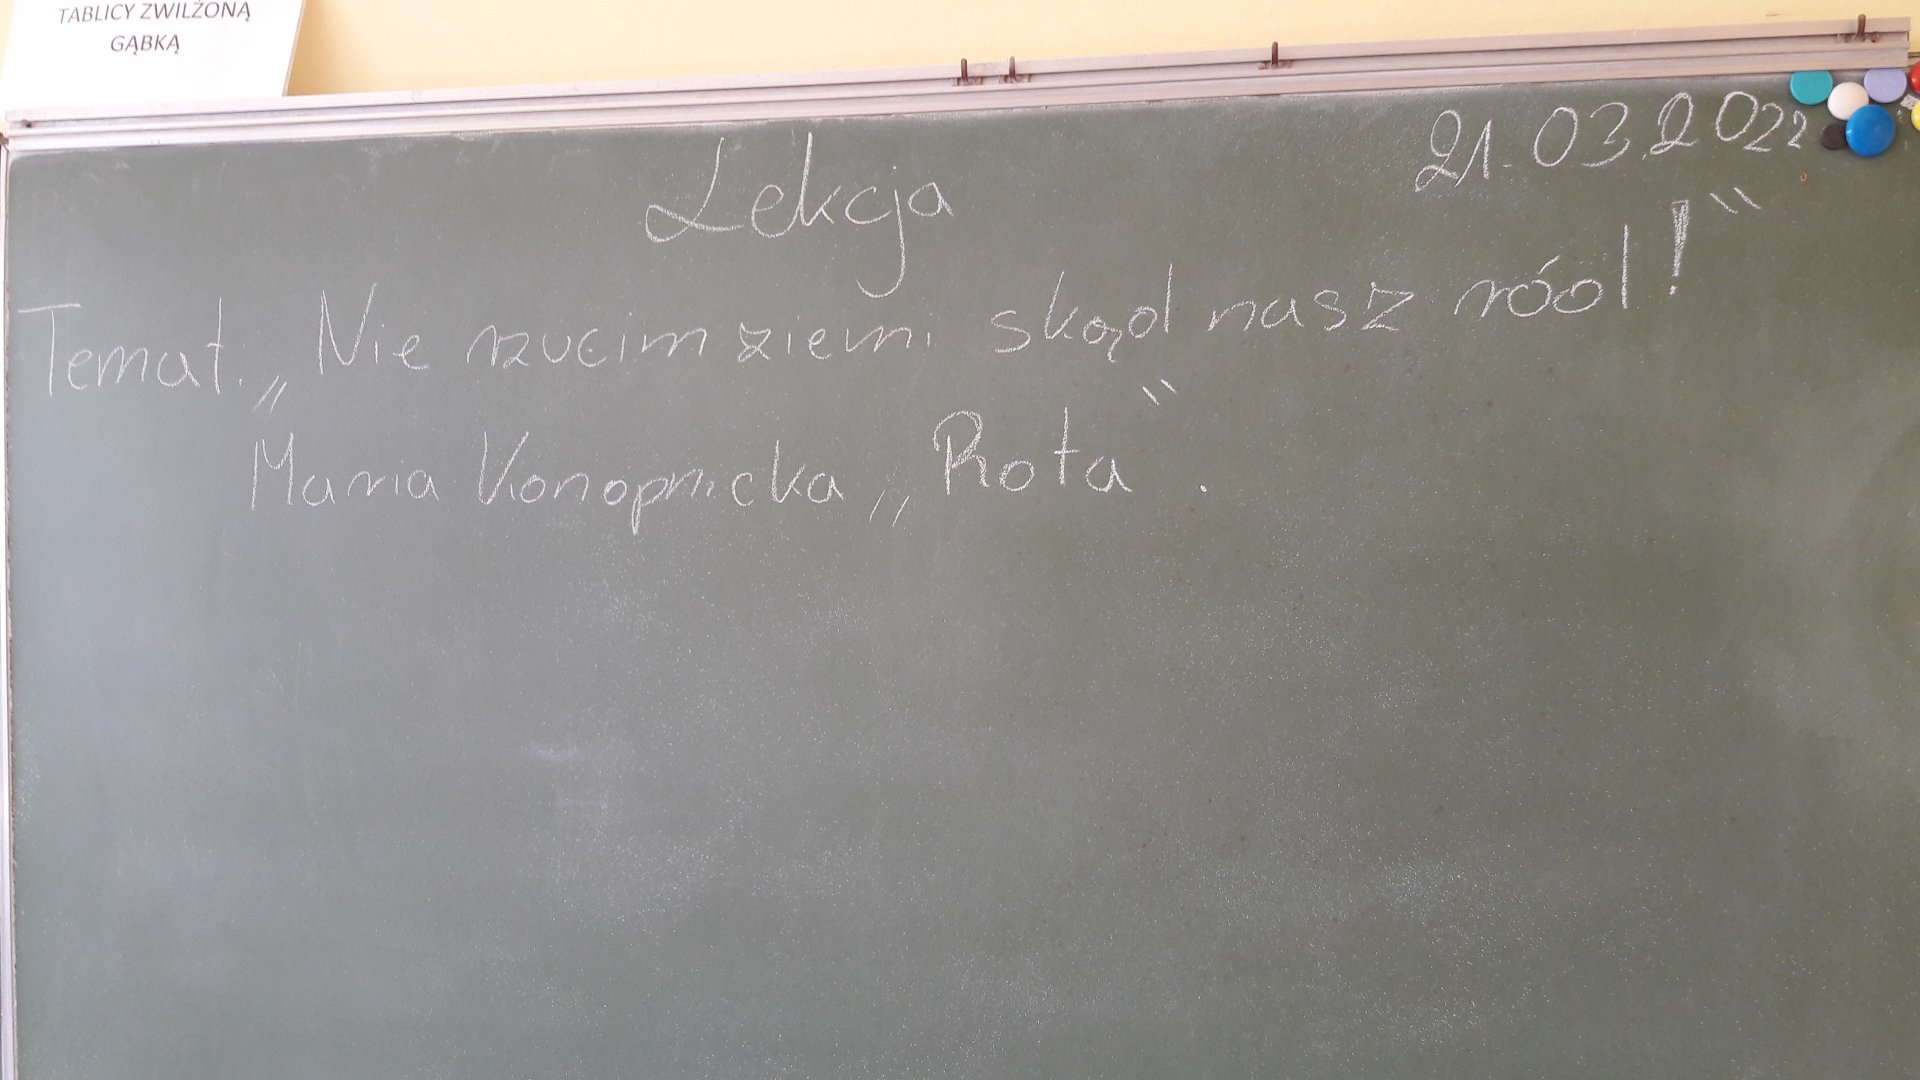 TABLICY ZWILŻONĄ
GĄBKĄ
21.03.2022
Lekcja
Temat. „Nie rzucim ziemi skąd nasz ród!"
Maria Konopnicka „Rota".